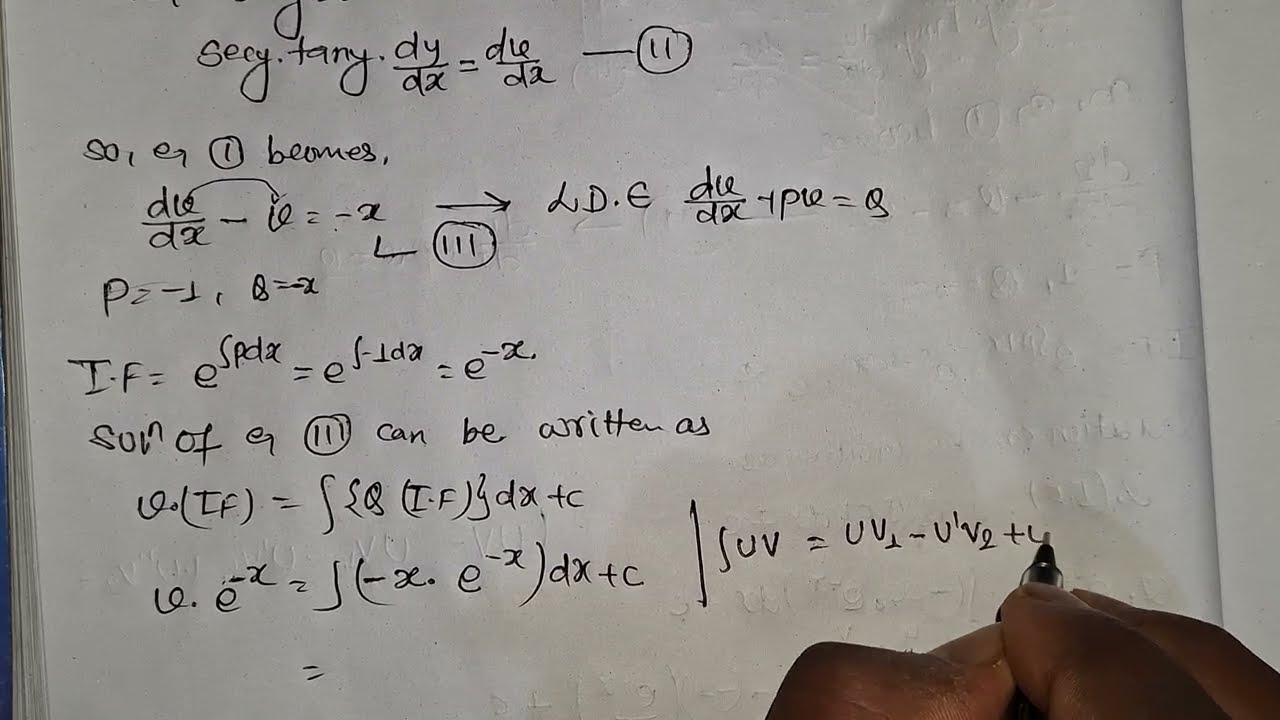 secy.tany.dy/dx = dv/dx — (II)
so, eq (I) becomes,
dv/dx - v = -x → L.D.E dv/dx + pv = Q
(III)
P = -1, Q = -x
I.F = e^∫pdx = e^∫-1dx = e^-x.
Solⁿ of eq (III) can be written as
v.(IF) = ∫{Q (I.F)}dx + c
v. e^-x = ∫(-x. e^-x)dx + c
∫UV = UV₁ - U'V₂ + U
=